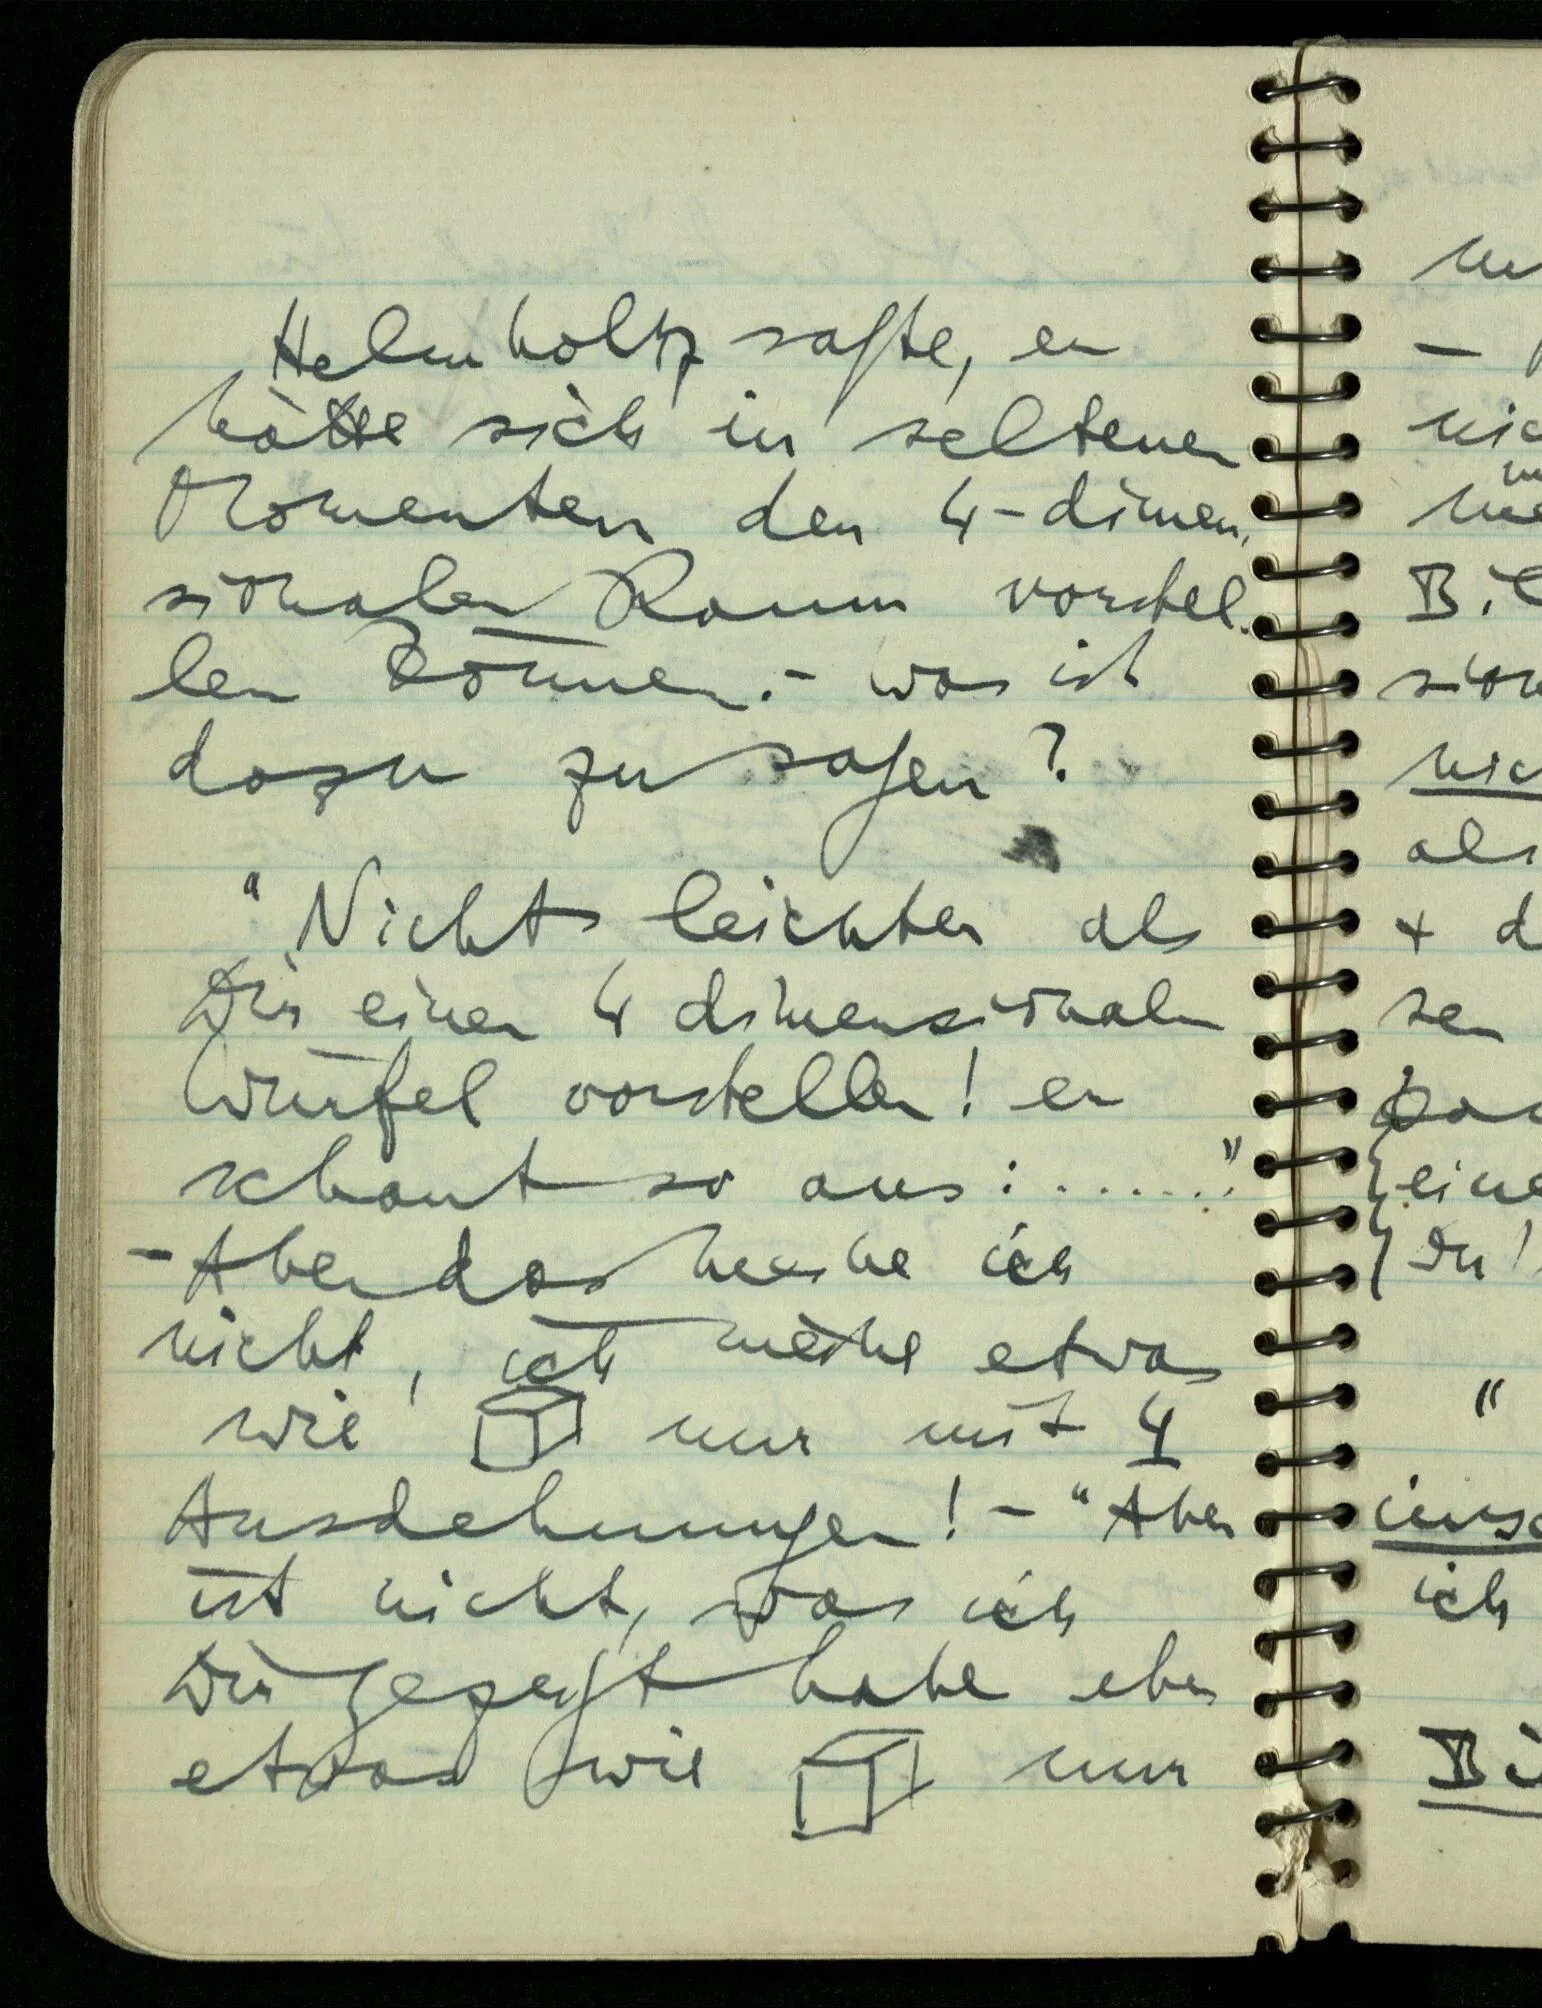 Helmholtz sagte, er
hätte sich in seltenen
Momenten den 4-dimen-
sionalen Raum vorstel-
len können. - was ist
dazu zu sagen?
"Nichts leichter als
Dir einen 4 dimensionalen
Würfel vorstellen! er
schaut so aus: ......."
- Aber das meine ich
nicht, ich meine etwas
wie nur mit 4
Ausdehnungen! - "Aber
ist nicht, was ich
Dir gezeigt habe eben
etwas wie nur
-
B
als
+ d
sen
eine
Du!
"
ich